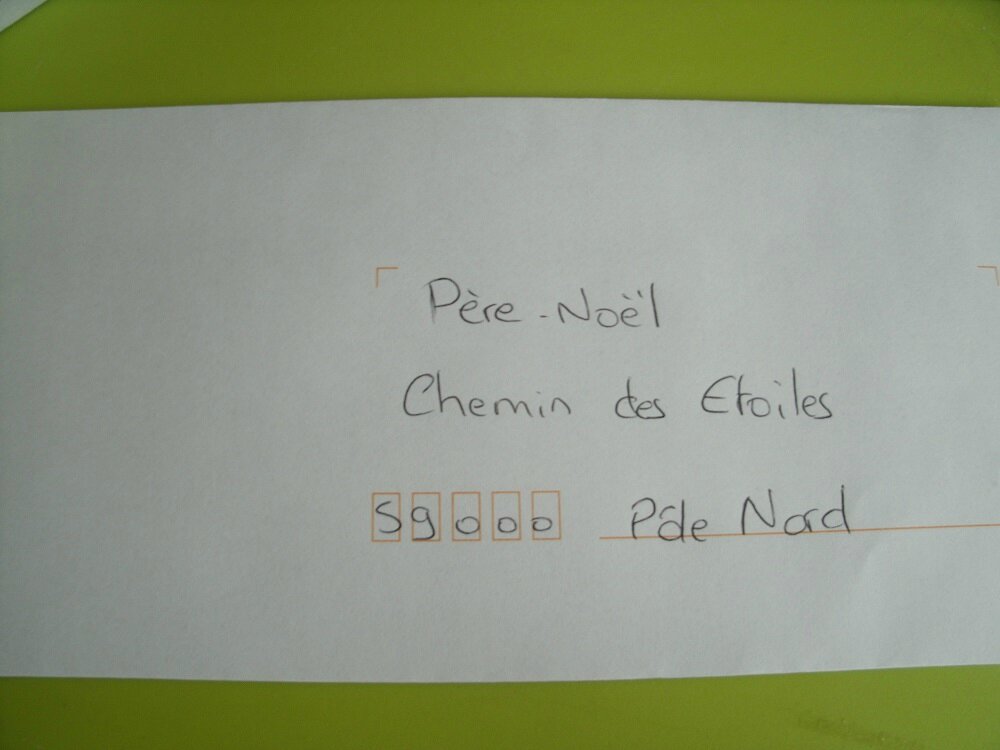 Père-Noël
Chemin des Etoiles
59000 Pôle Nord